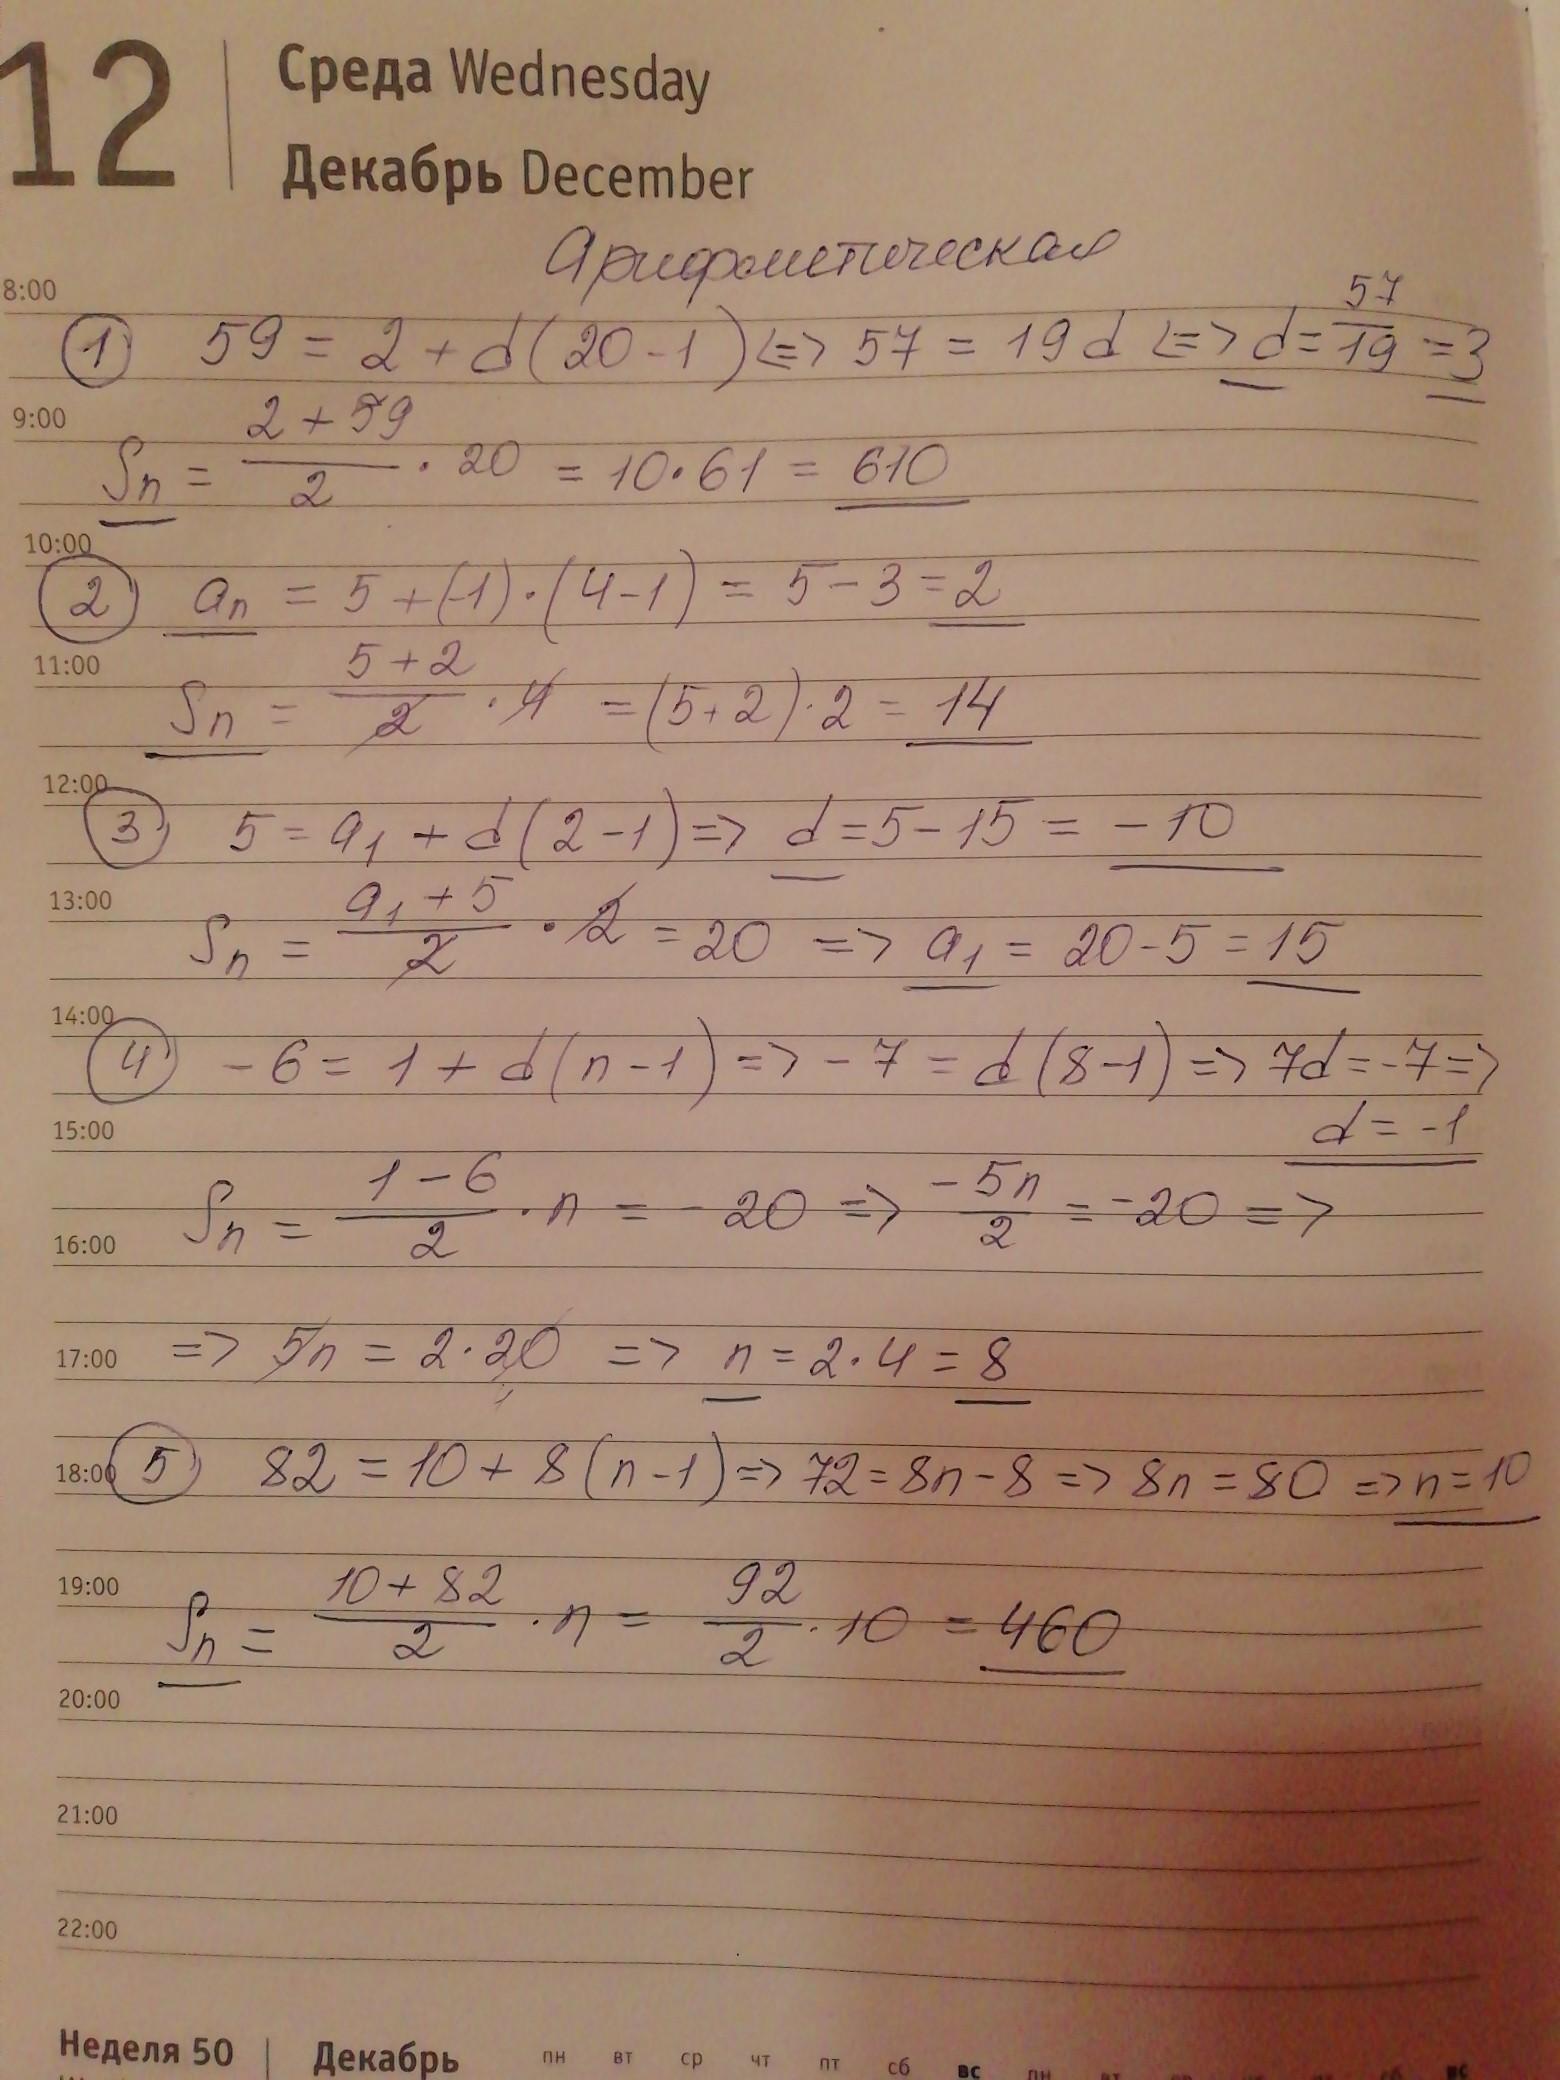 12
Среда Wednesday
Декабрь December
Арифметическая
8:00
① 59 = 2 + d(20-1) <=> 57 = 19d <=> d = 57/19 = 3
9:00
Sn = (2+59)/2 · 20 = 10·61 = 610
10:00
② an = 5 + (-1)·(4-1) = 5-3 = 2
11:00
Sn = (5+2)/2 · 4 = (5+2)·2 = 14
12:00
③ 5 = a1 + d(2-1) => d = 5-15 = -10
13:00
Sn = (a1+5)/2 · 2 = 20 => a1 = 20-5 = 15
14:00
④ -6 = 1 + d(n-1) => -7 = d(8-1) => 7d = -7 =>
15:00
d = -1
Sn = (1-6)/2 · n = -20 => -5n/2 = -20 =>
16:00
17:00
=> 5n = 2·20 => n = 2·4 = 8
18:00
⑤ 82 = 10 + 8(n-1) => 72 = 8n-8 => 8n = 80 => n = 10
19:00
Sn = (10+82)/2 · n = 92/2 · 10 = 460
20:00
21:00
22:00
Неделя 50 | Декабрь
пн вт ср чт пт сб вс пн вт сб вс